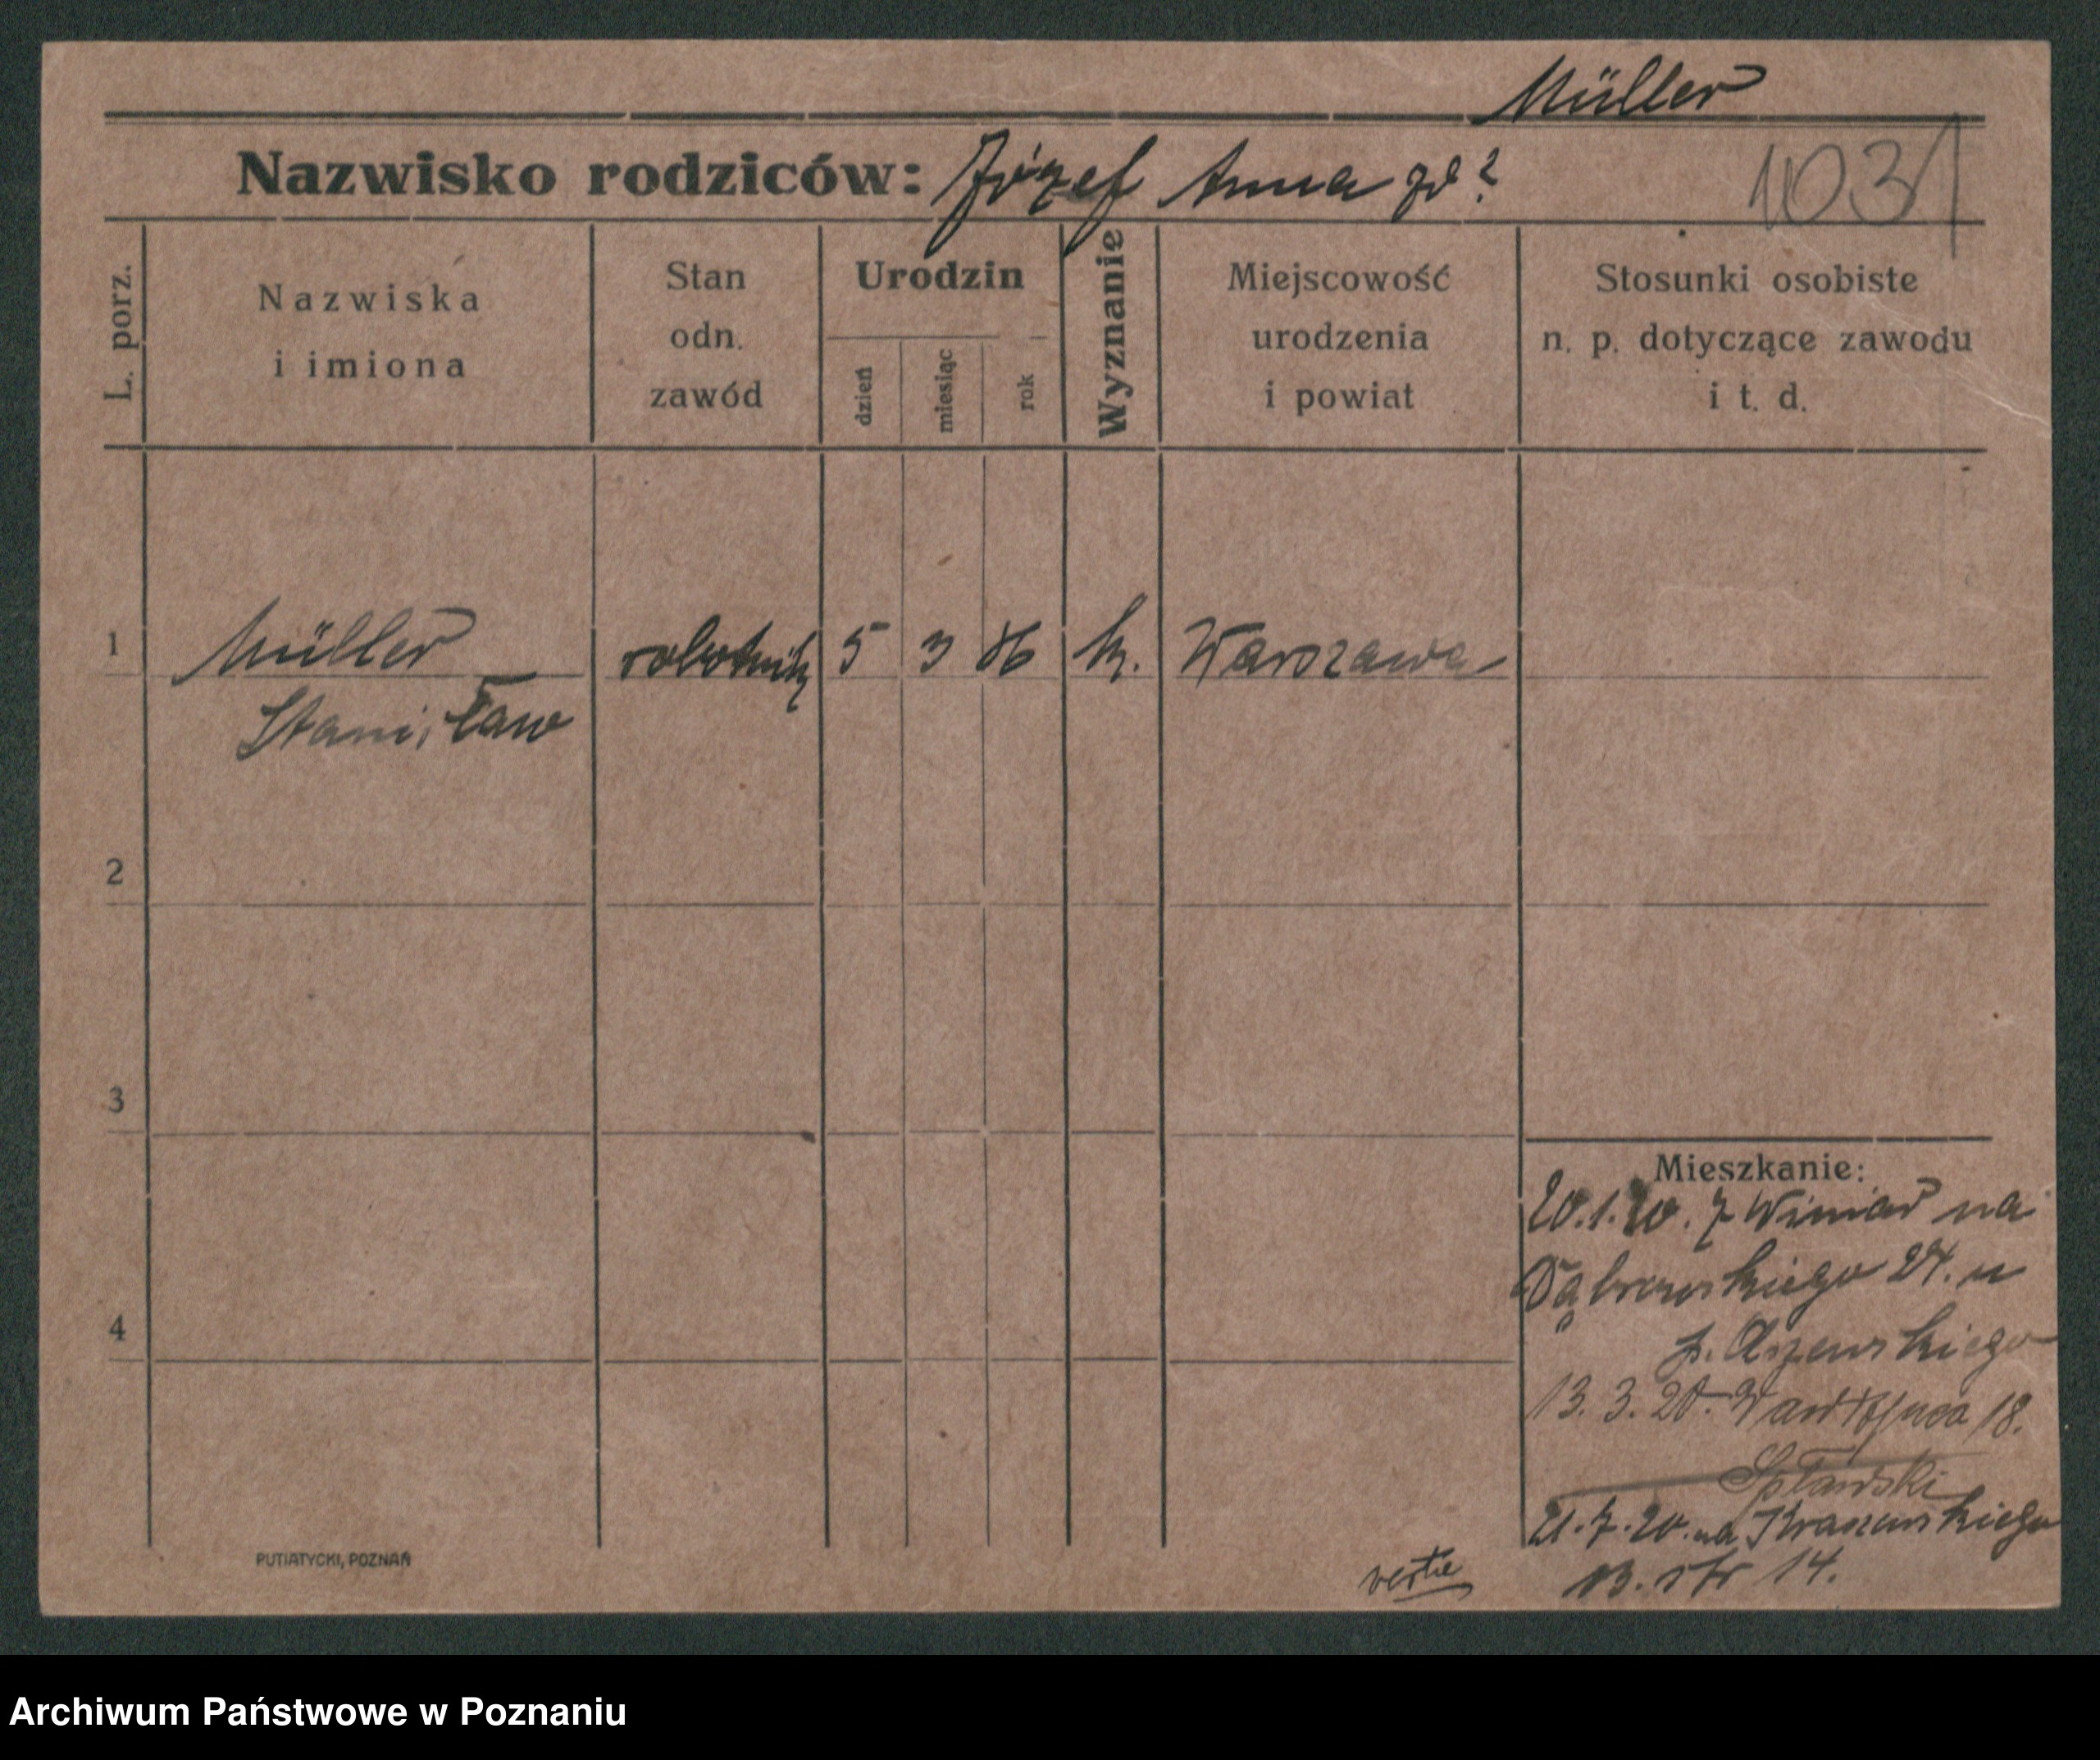 Müller
Nazwisko rodziców: Józef Anna zd?
1031
L. porz.
Nazwiska
i imiona
Stan
odn.
zawód
Urodzin
dzień
miesiąc
rok
Wyznanie
Miejscowość
urodzenia
i powiat
Stosunki osobiste
n. p. dotyczące zawodu
i t. d.
1
Müller
Stanisław
robotnik
5
3
86
k.
Warszawa
2
3
4
Mieszkanie:
20.1.20. z Winiar na
Dąbrowskiego 24. u
p.
13. 3. 20. 18.
Spławski
21.7.20. na Kraszewskiego
13. str 14.
verte
PUTIATYCKI, POZNAŃ
Archiwum Państwowe w Poznaniu